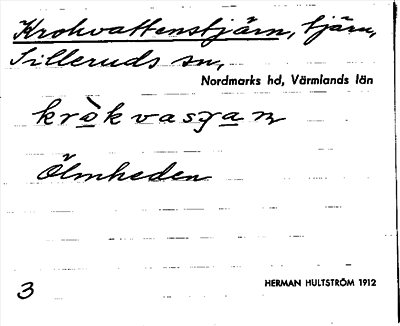 Krokvattenstjärn, tjärn,
Silleruds sn,
Nordmarks hd, Värmlands län
kràkvasjan
Ölmheden
HERMAN HULTSTRÖM 1912
3